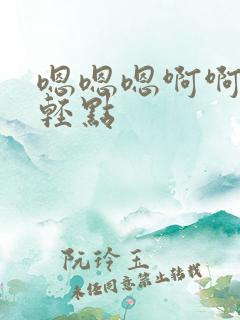 嗯嗯嗯啊啊
轻點
阮玲玉
未经同意禁止转载